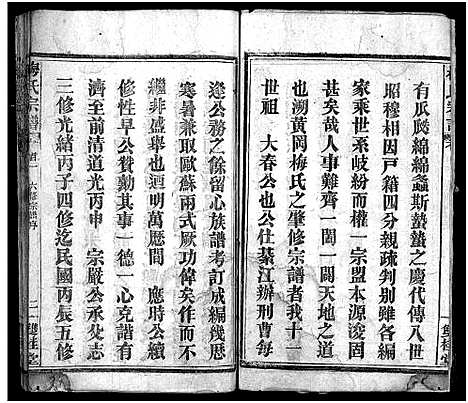 有瓜瓞綿綿螽斯蟄蟄之慶代傳八世
昭穆相因戶籍四分親疎判別雖各編
家乘世系岐紛而權一宗盟本源浚固
甚矣哉人事難齊一闔一闢天地之道
也溯黃岡梅氏之肇修宗譜者我十一
世祖 大春公也公仕綦江辦刑曹每
逢公務之餘留心族譜考訂成編幾歷
寒暑兼取歐蘇兩式厥功偉矣奈失承
繼非盛舉也迴明萬曆間 應時公續
修性早公贊勷其事一德一心克諧有
濟至前清道光丙申 宗嚴公承父志
三修光緒丙子四修迄民國丙辰五修
梅氏宗譜 首一 六修宗譜序 二 雙桂堂
雙桂堂